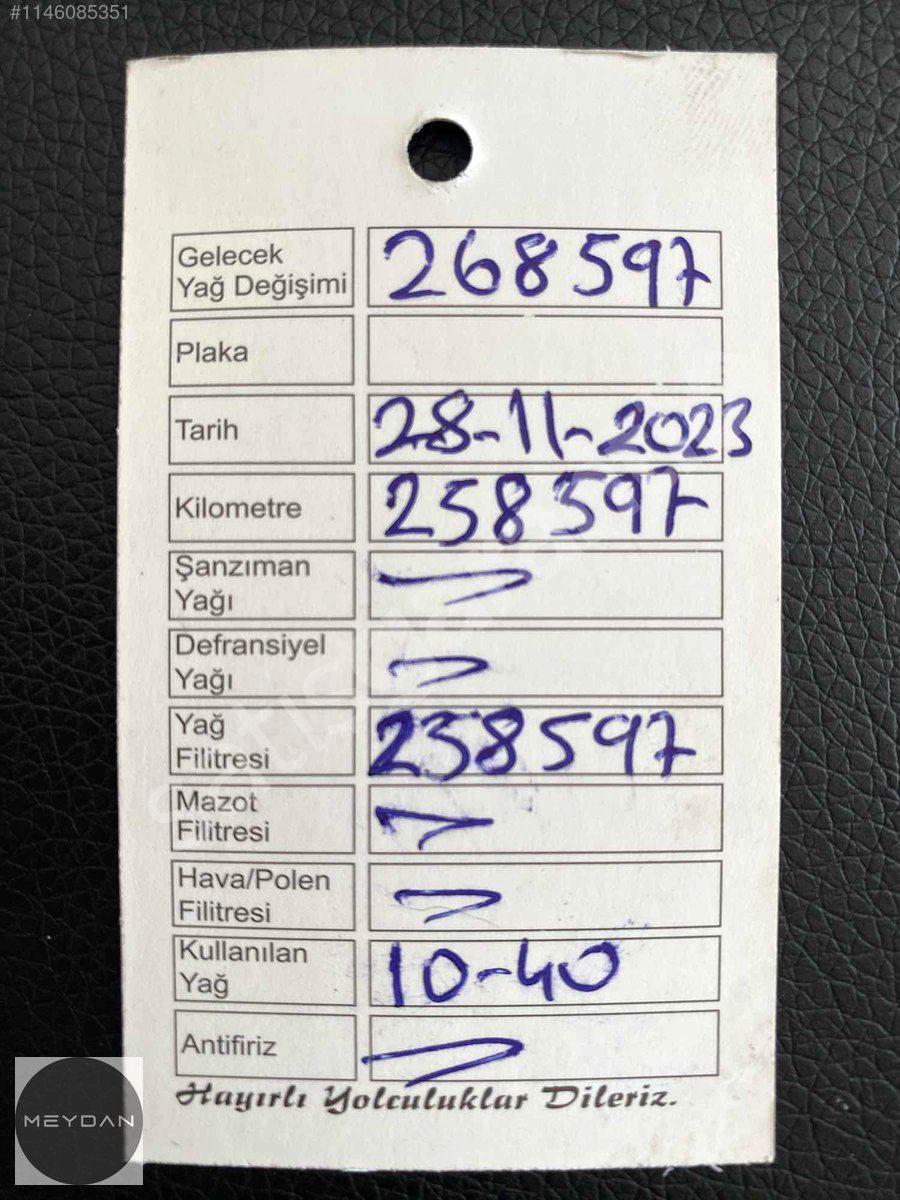 #1146085351
Gelecek
Yağ Değişimi
268597
Plaka
Tarih
28-11-2023
Kilometre
258597
Şanzıman
Yağı
Defransiyel
Yağı
Yağ
Filitresi
258597
Mazot
Filitresi
Hava/Polen
Filitresi
Kullanılan
Yağ
10-40
Antifiriz
Hayırlı Yolculuklar Dileriz.
MEYDAN